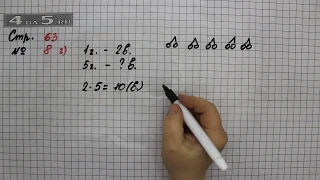 4 на 5.ru
Стр. 63
№ 8 г)
1г. - 2в.
5г. - ? в.
2·5 = 10 (в.)